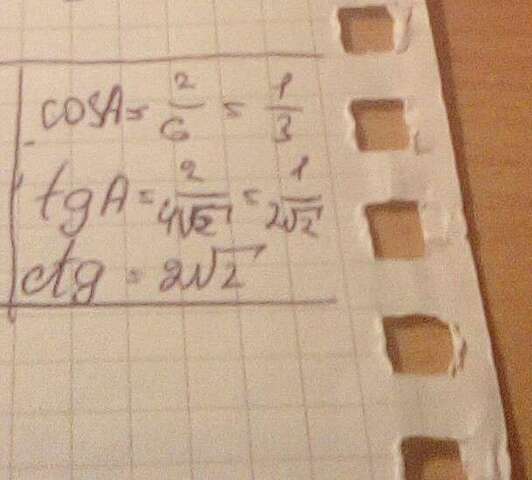 cosA = 2/6 = 1/3
tgA = 2/4√2 = 1/2√2
ctg = 2√2